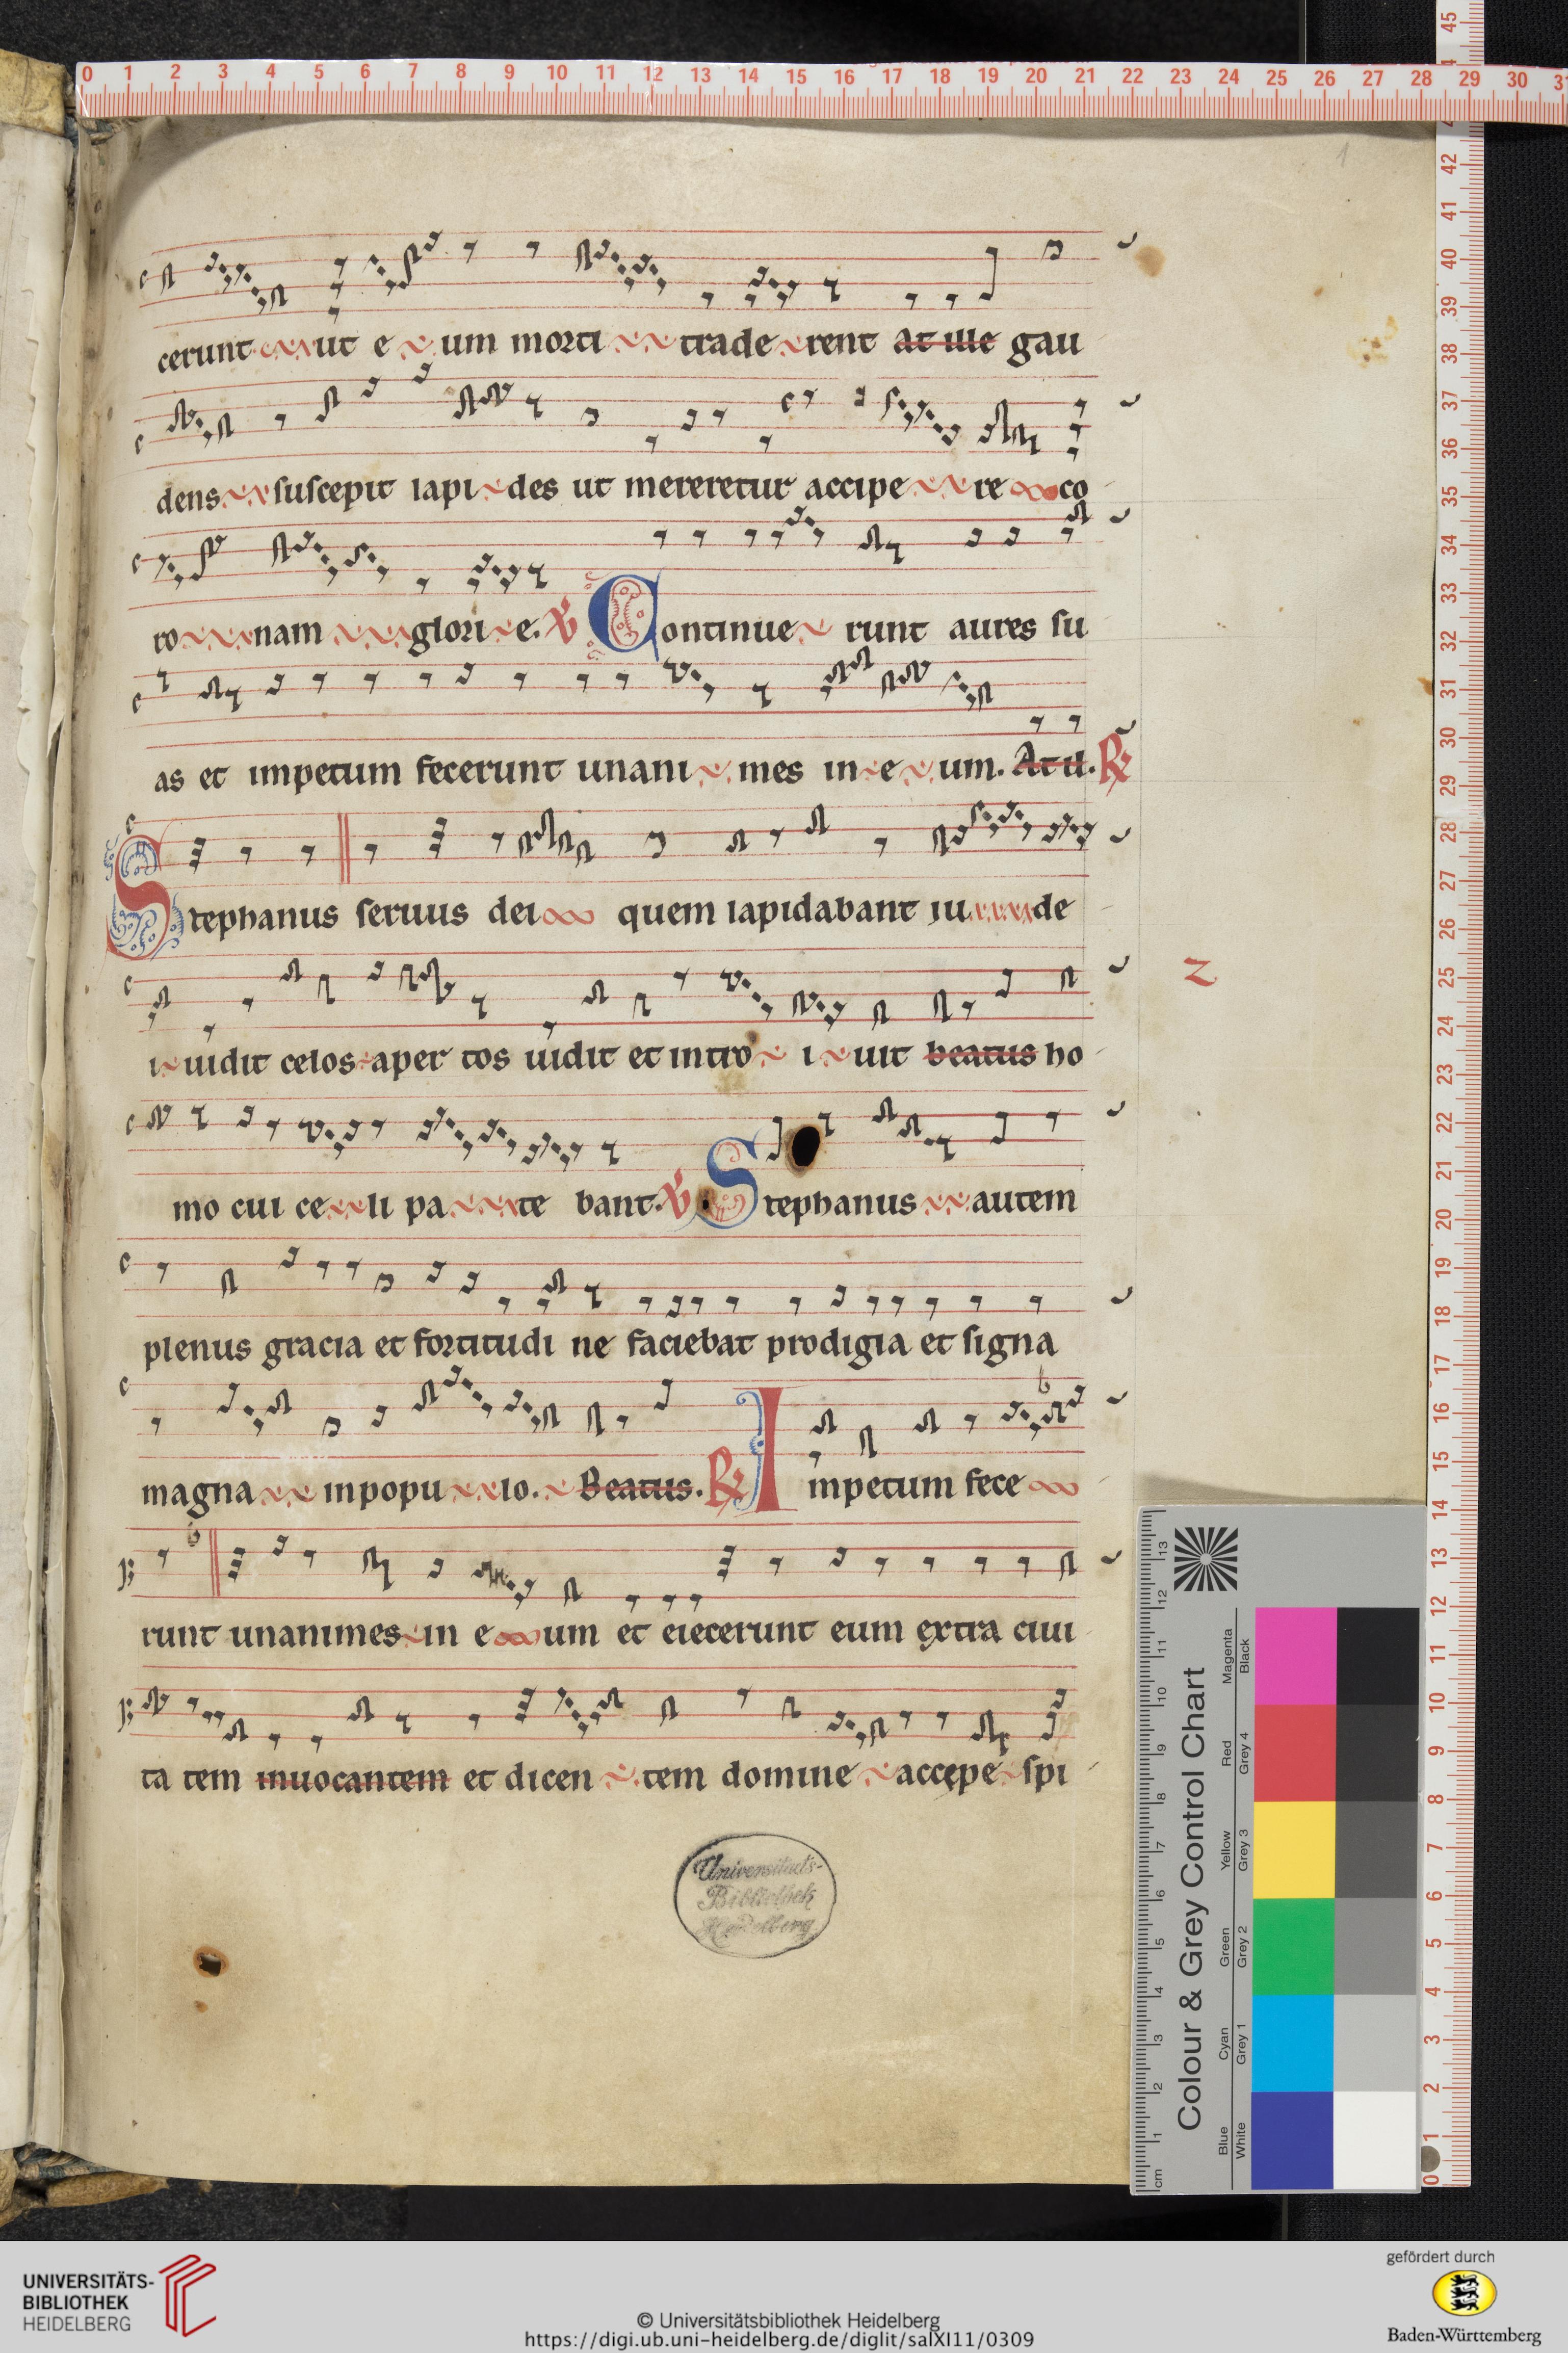 cerunt ut e um morti trade rent At ille gau
dens suscepit lapi des ut mereretur accipe re co
ro nam glori e. V Continue runt aures su
as et impetum fecerunt unani mes in e um. At il. R
Stephanus seruus dei quem lapidabant iu de
i uidit celos aper tos uidit et intro i uit beatus ho
mo cui ce li pa te bant. V Stephanus autem
plenus gracia et fortitudi ne faciebat prodigia et signa
magna in popu lo. Beatus. R Impetum fece
runt unanimes in e um et eiecerunt eum extra ciui
ta tem inuocantem et dicen tem domine accepe spi
Universitäts-
Bibliothek
Heidelberg
1
Z
Colour & Grey Control Chart
Blue Cyan Green Yellow Red Magenta
White Grey 1 Grey 2 Grey 3 Grey 4 Black
cm 1 2 3 4 5 6 7 8 9 10 11 12 13
0 1 2 3 4 5 6 7 8 9 10 11 12 13 14 15 16 17 18 19 20 21 22 23 24 25 26 27 28 29 30
UNIVERSITÄTS-
BIBLIOTHEK
HEIDELBERG
© Universitätsbibliothek Heidelberg
https://digi.ub.uni-heidelberg.de/diglit/salXI11/0309
gefördert durch
Baden-Württemberg